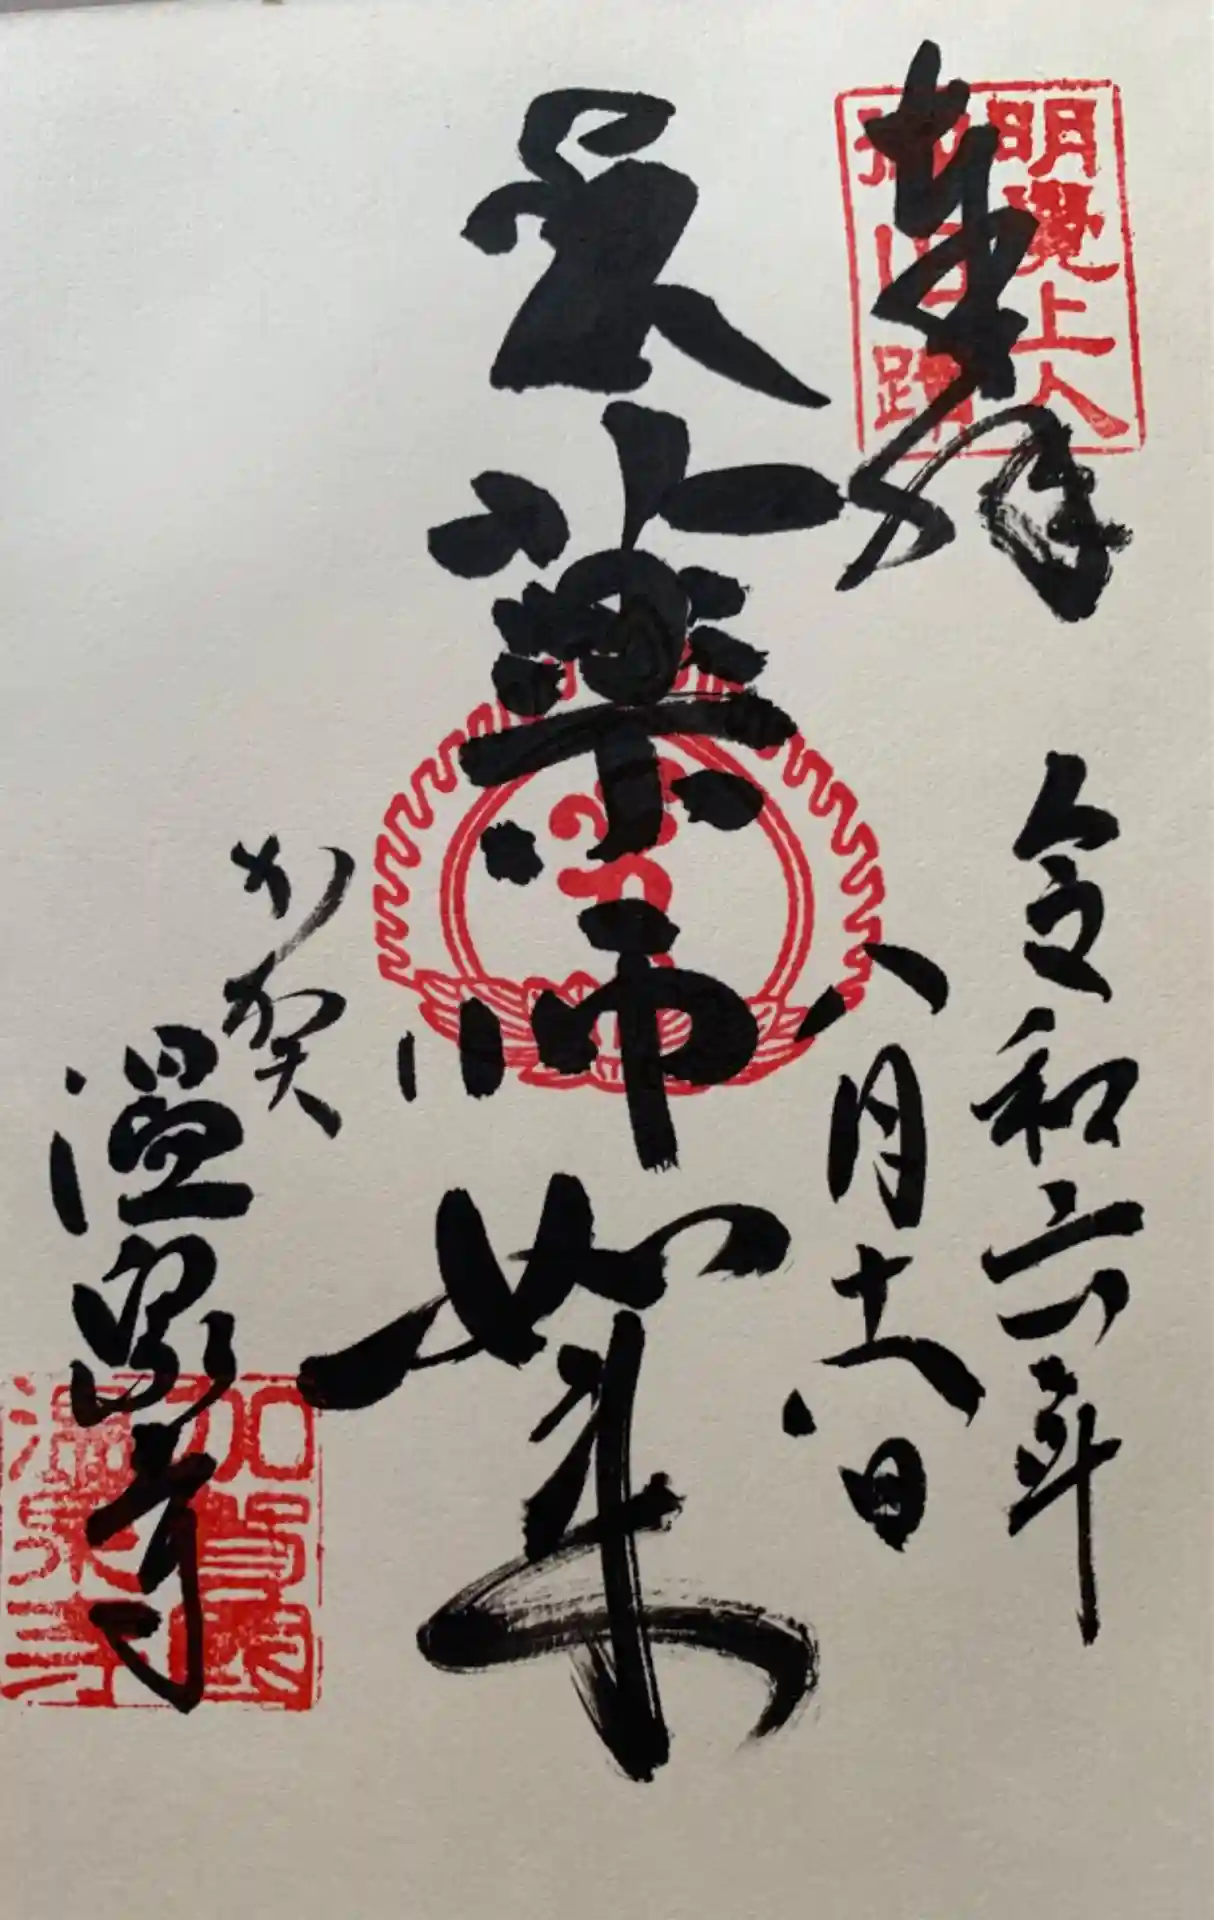 奉拝
明覺上人
御旧蹟
令和六年
八月十八日
薬師如来
加賀
温泉寺
加賀國
温泉寺